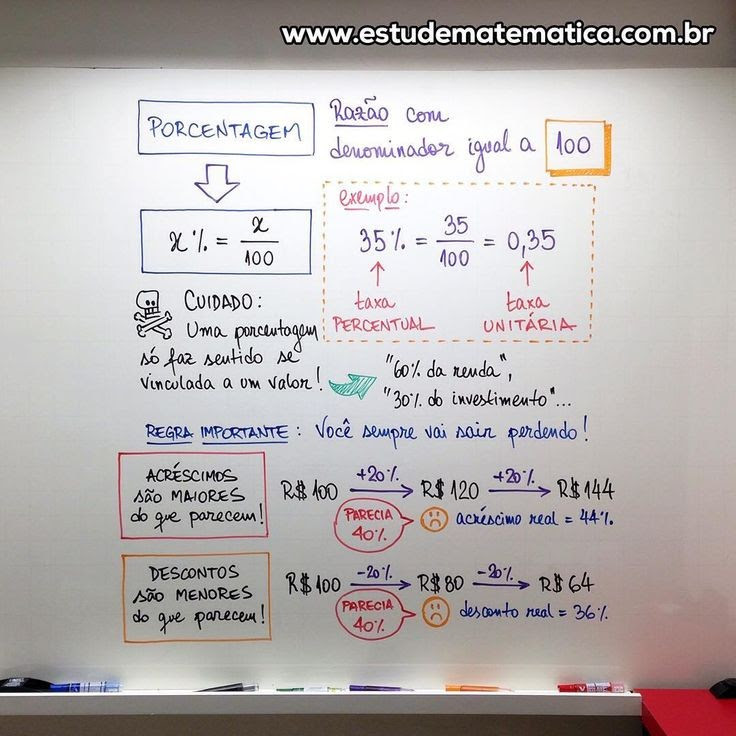 www.estudematematica.com.br
PORCENTAGEM
Razão com
denominador igual a 100
x% = x/100
exemplo:
35% = 35/100 = 0,35
taxa
PERCENTUAL
taxa
UNITÁRIA
CUIDADO:
Uma porcentagem
só faz sentido se
vinculada a um valor!
"60% da renda",
"30% do investimento"...
REGRA IMPORTANTE: Você sempre vai sair perdendo!
ACRÉSCIMOS
são MAIORES
do que parecem!
+20% +20%
R$100 R$120 R$144
PARECIA
40%
acréscimo real = 44%
DESCONTOS
são MENORES
do que parecem!
-20% -20%
R$100 R$80 R$64
PARECIA
40%
desconto real = 36%